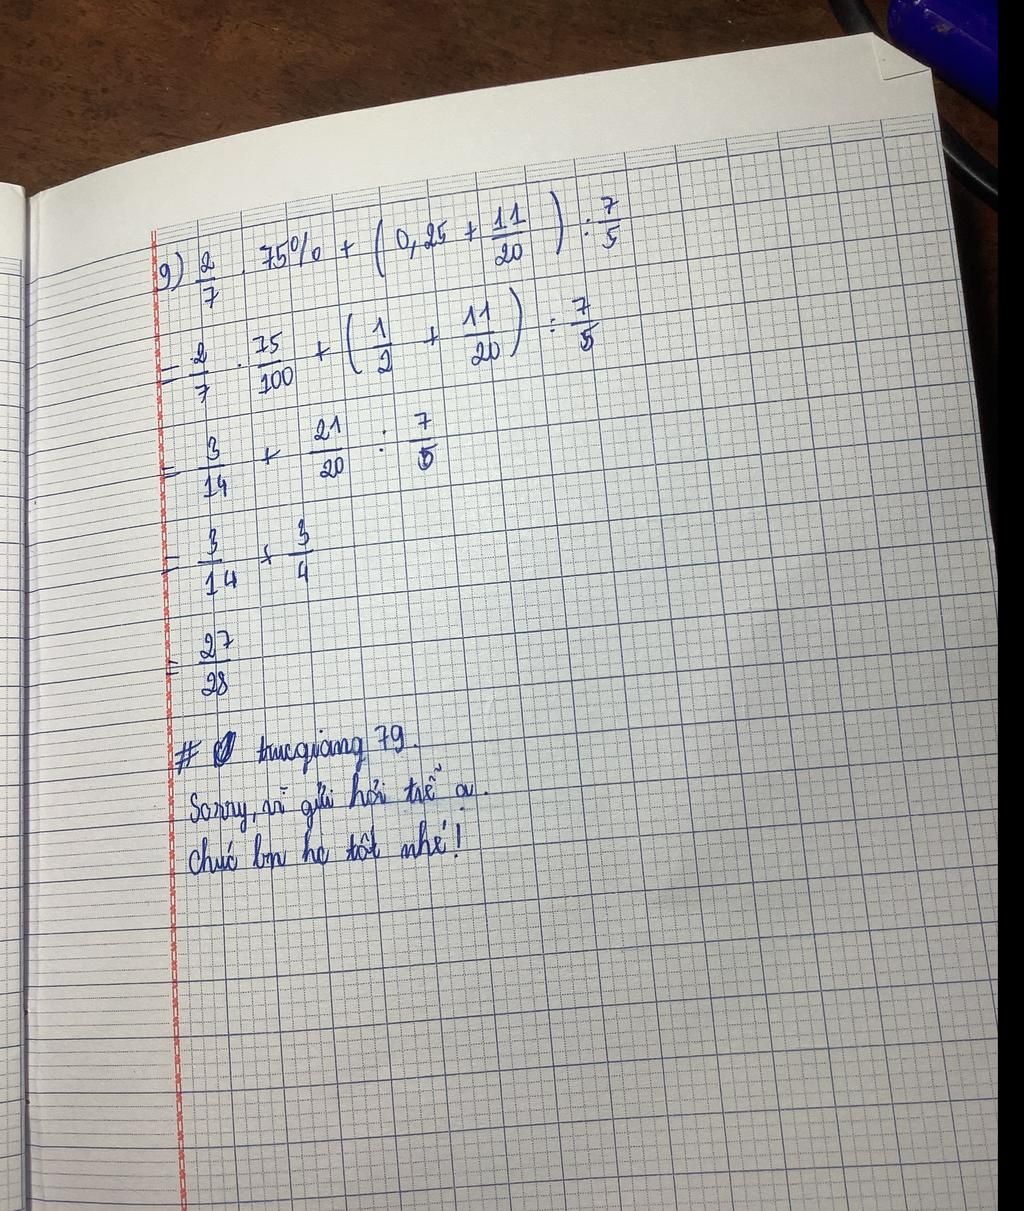 9) 2/7 . 75% + ( 0,25 + 11/20 ) : 7/5
= 2/7 . 75/100 + ( 1/2 + 11/20 ) : 7/5
= 3/14 + 21/20 : 7/5
= 3/14 + 3/4
= 27/28
# trucgiang 79.
Sorry, vì gửi hơi trễ ạ.
chúc bn hc tốt nhé!